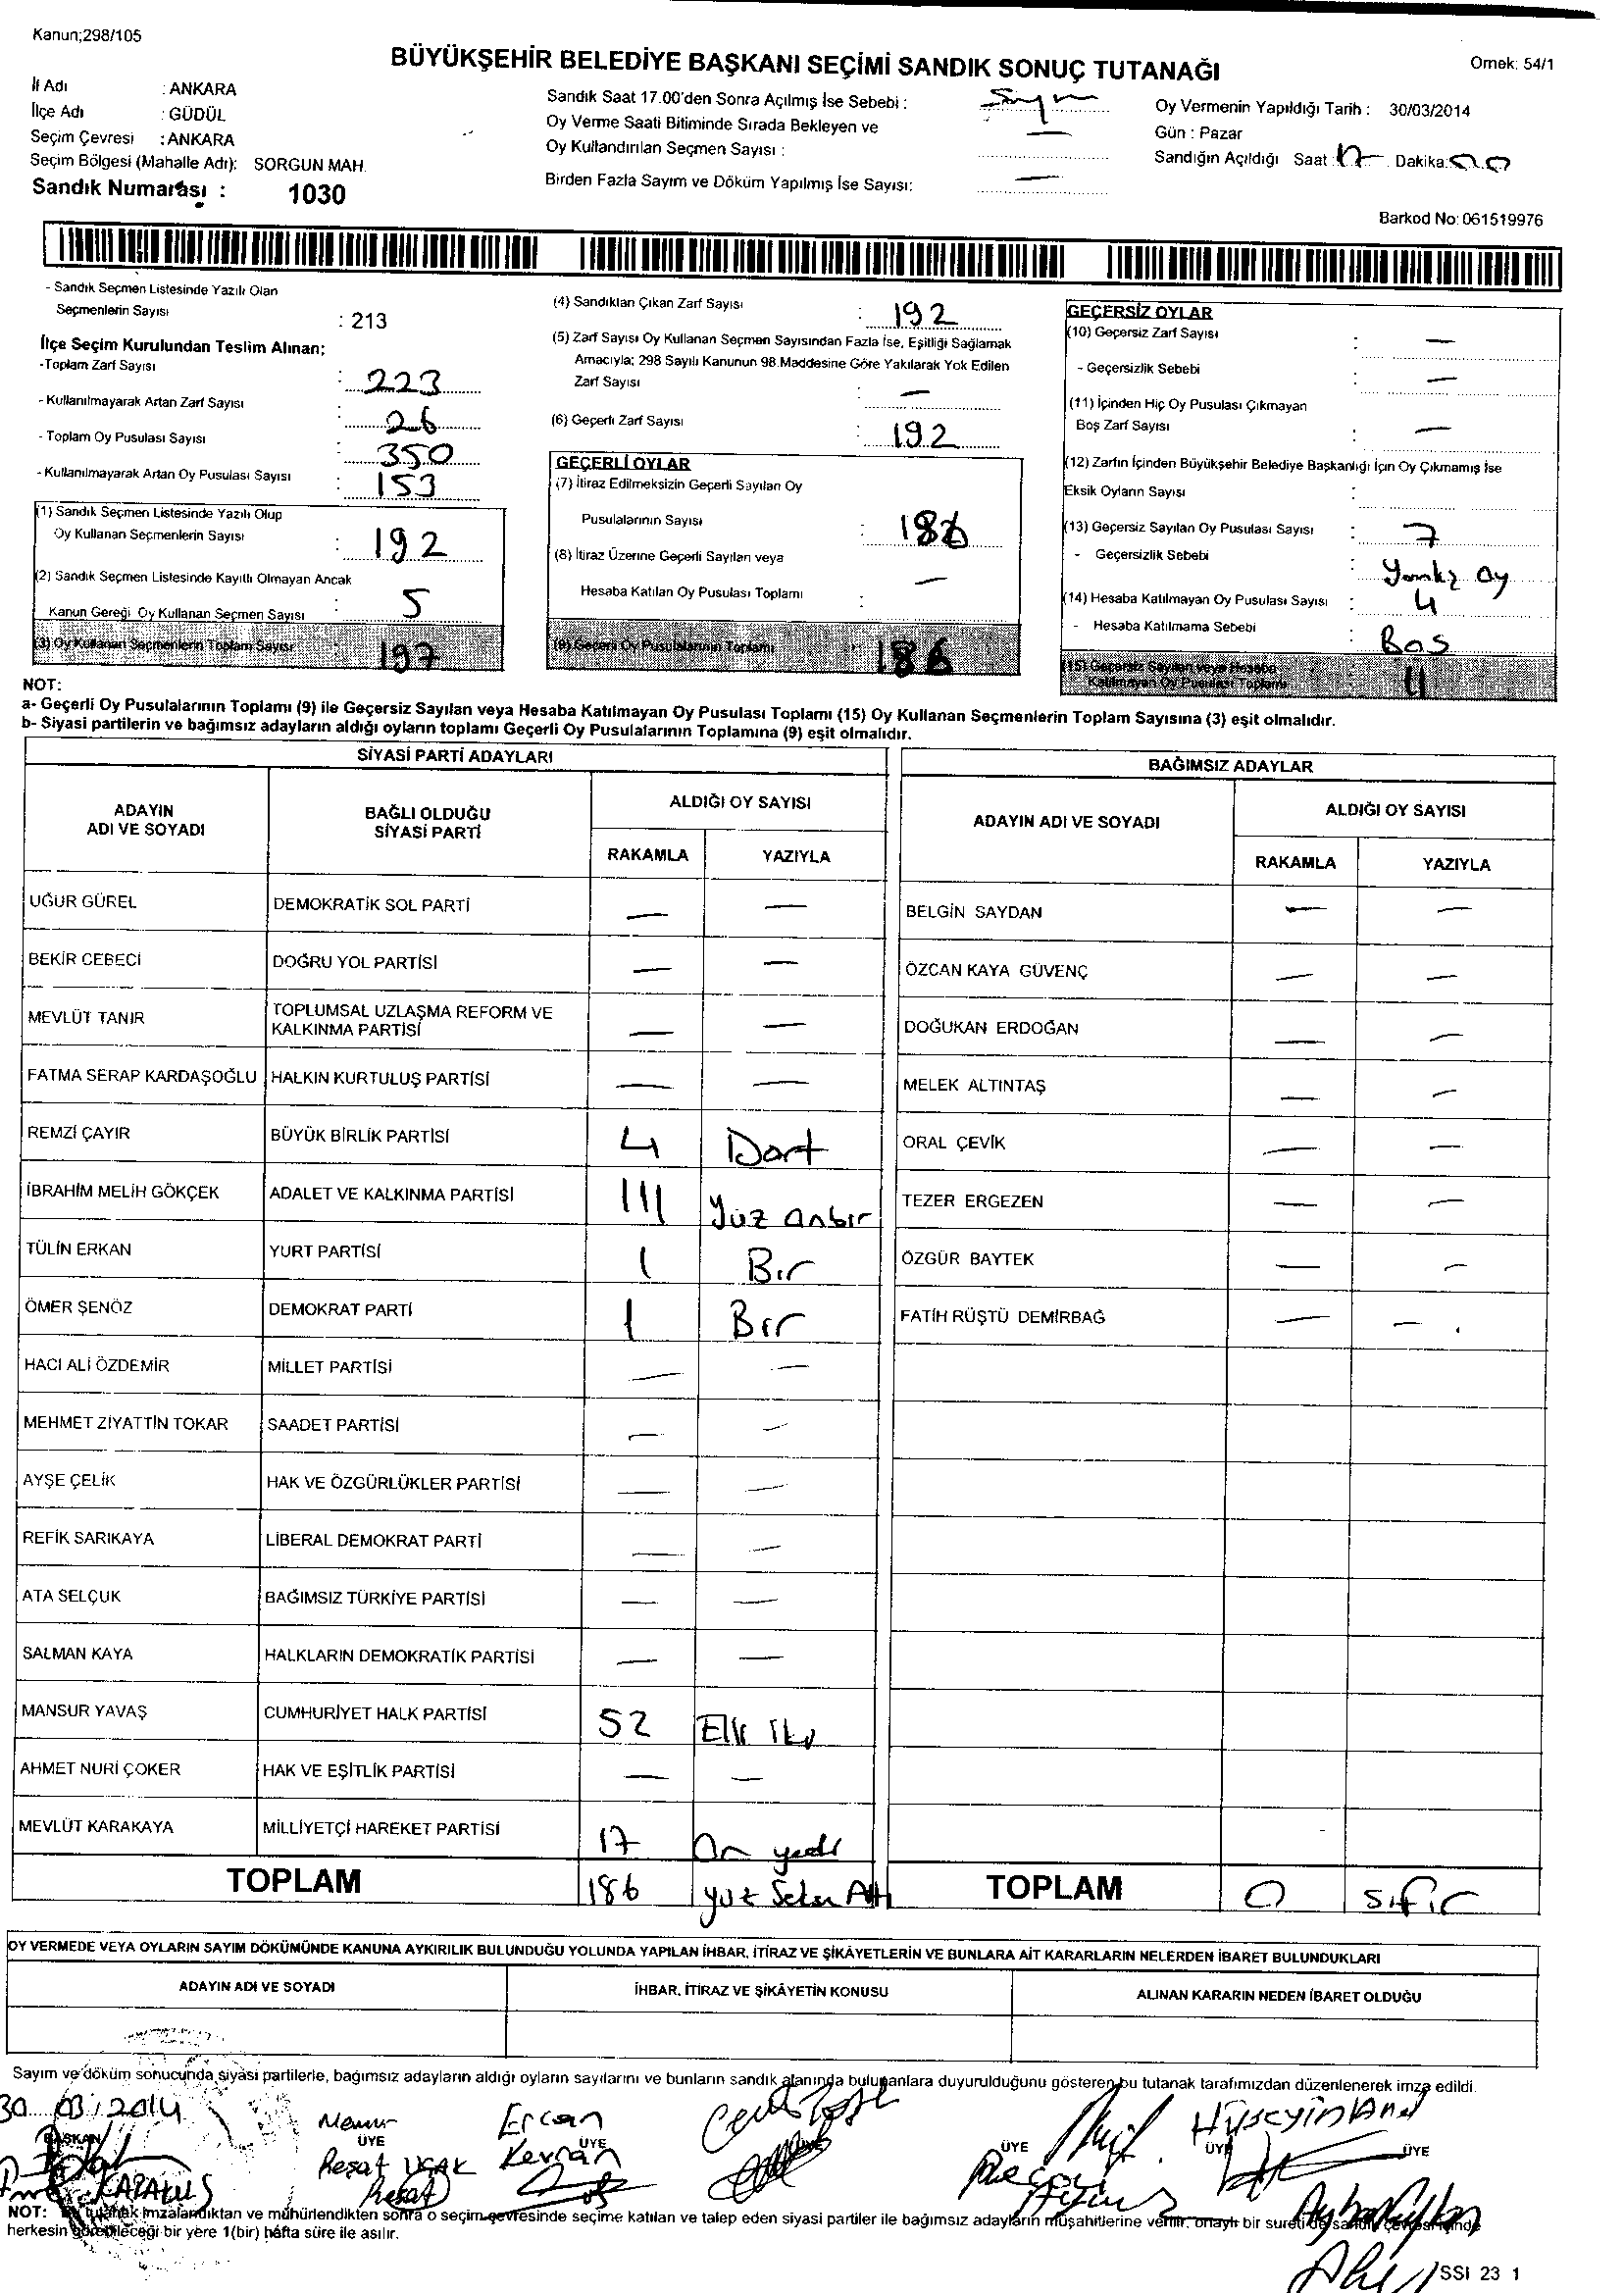 Kanun;298/105
BÜYÜKŞEHİR BELEDİYE BAŞKANI SEÇİMİ SANDIK SONUÇ TUTANAĞI
Örnek: 54/1
İl Adı : ANKARA
İlçe Adı : GÜDÜL
Seçim Çevresi : ANKARA
Seçim Bölgesi (Mahalle Adı): SORGUN MAH.
Sandık Numarası : 1030
Sandık Saat 17.00'den Sonra Açılmış İse Sebebi :
Oy Verme Saati Bitiminde Sırada Bekleyen ve
Oy Kullandırılan Seçmen Sayısı : —
Birden Fazla Sayım ve Döküm Yapılmış İse Sayısı: —
Oy Vermenin Yapıldığı Tarih : 30/03/2014
Gün : Pazar
Sandığın Açıldığı Saat : 17 Dakika: 00
Barkod No: 061519976
- Sandık Seçmen Listesinde Yazılı Olan
Seçmenlerin Sayısı : 213
İlçe Seçim Kurulundan Teslim Alınan;
-Toplam Zarf Sayısı : 223
- Kullanılmayarak Artan Zarf Sayısı : 26
- Toplam Oy Pusulası Sayısı : 350
- Kullanılmayarak Artan Oy Pusulası Sayısı : 153
(1) Sandık Seçmen Listesinde Yazılı Olup
Oy Kullanan Seçmenlerin Sayısı : 192
(2) Sandık Seçmen Listesinde Kayıtlı Olmayan Ancak
Kanun Gereği Oy Kullanan Seçmen Sayısı : 5
(3) Oy Kullanan Seçmenlerin Toplam Sayısı 197
(4) Sandıktan Çıkan Zarf Sayısı : 192
(5) Zarf Sayısı Oy Kullanan Seçmen Sayısından Fazla İse, Eşitliği Sağlamak
Amacıyla; 298 Sayılı Kanunun 98.Maddesine Göre Yakılarak Yok Edilen
Zarf Sayısı : —
(6) Geçerli Zarf Sayısı : 192
GEÇERLİ OYLAR
(7) İtiraz Edilmeksizin Geçerli Sayılan Oy
Pusulalarının Sayısı : 186
(8) İtiraz Üzerine Geçerli Sayılan veya
Hesaba Katılan Oy Pusulası Toplamı : —
(9) Geçerli Oy Pusulalarının Toplamı 186
GEÇERSİZ OYLAR
(10) Geçersiz Zarf Sayısı : —
- Geçersizlik Sebebi : —
(11) İçinden Hiç Oy Pusulası Çıkmayan
Boş Zarf Sayısı : —
(12) Zarfın İçinden Büyükşehir Belediye Başkanlığı İçin Oy Çıkmamış İse
Eksik Oyların Sayısı :
(13) Geçersiz Sayılan Oy Pusulası Sayısı : 7
- Geçersizlik Sebebi : Oy
(14) Hesaba Katılmayan Oy Pusulası Sayısı : 4
- Hesaba Katılmama Sebebi : Bos
(15) Geçersiz Sayılan veya Hesaba
Katılmayan Oy Pusulası Toplamı 11
NOT:
a- Geçerli Oy Pusulalarının Toplamı (9) ile Geçersiz Sayılan veya Hesaba Katılmayan Oy Pusulası Toplamı (15) Oy Kullanan Seçmenlerin Toplam Sayısına (3) eşit olmalıdır.
b- Siyasi partilerin ve bağımsız adayların aldığı oyların toplamı Geçerli Oy Pusulalarının Toplamına (9) eşit olmalıdır.
SİYASİ PARTİ ADAYLARI
ADAYIN ADI VE SOYADI BAĞLI OLDUĞU SİYASİ PARTİ ALDIĞI OY SAYISI
RAKAMLA YAZIYLA
UĞUR GÜREL DEMOKRATİK SOL PARTİ — —
BEKİR CEBECİ DOĞRU YOL PARTİSİ — —
MEVLÜT TANIR TOPLUMSAL UZLAŞMA REFORM VE KALKINMA PARTİSİ — —
FATMA SERAP KARDAŞOĞLU HALKIN KURTULUŞ PARTİSİ — —
REMZİ ÇAYIR BÜYÜK BİRLİK PARTİSİ 4 Dört
İBRAHİM MELİH GÖKÇEK ADALET VE KALKINMA PARTİSİ 111 Yüz onbir
TÜLİN ERKAN YURT PARTİSİ 1 Bir
ÖMER ŞENÖZ DEMOKRAT PARTİ 1 Bir
HACI ALİ ÖZDEMİR MİLLET PARTİSİ — —
MEHMET ZİYATTİN TOKAR SAADET PARTİSİ — —
AYŞE ÇELİK HAK VE ÖZGÜRLÜKLER PARTİSİ — —
REFİK SARIKAYA LİBERAL DEMOKRAT PARTİ — —
ATA SELÇUK BAĞIMSIZ TÜRKİYE PARTİSİ — —
SALMAN KAYA HALKLARIN DEMOKRATİK PARTİSİ — —
MANSUR YAVAŞ CUMHURİYET HALK PARTİSİ 52 Elli İki
AHMET NURİ ÇOKER HAK VE EŞİTLİK PARTİSİ — —
MEVLÜT KARAKAYA MİLLİYETÇİ HAREKET PARTİSİ 17 On yedi
TOPLAM 186 Yüz Seksen Altı
BAĞIMSIZ ADAYLAR
ADAYIN ADI VE SOYADI ALDIĞI OY SAYISI
RAKAMLA YAZIYLA
BELGİN SAYDAN — —
ÖZCAN KAYA GÜVENÇ — —
DOĞUKAN ERDOĞAN — —
MELEK ALTINTAŞ — —
ORAL ÇEVİK — —
TEZER ERGEZEN — —
ÖZGÜR BAYTEK — —
FATİH RÜŞTÜ DEMİRBAĞ — —
TOPLAM 0 sıfır
OY VERMEDE VEYA OYLARIN SAYIM DÖKÜMÜNDE KANUNA AYKIRILIK BULUNDUĞU YOLUNDA YAPILAN İHBAR, İTİRAZ VE ŞİKÂYETLERİN VE BUNLARA AİT KARARLARIN NELERDEN İBARET BULUNDUKLARI
ADAYIN ADI VE SOYADI İHBAR, İTİRAZ VE ŞİKÂYETİN KONUSU ALINAN KARARIN NEDEN İBARET OLDUĞU
Sayım ve döküm sonucunda siyasi partilerle, bağımsız adayların aldığı oyların sayılarını ve bunların sandık alanında bulunanlara duyurulduğunu gösteren bu tutanak tarafımızdan düzenlenerek imza edildi.
30 03/2014
Memur Ercan
BAŞKAN ÜYE ÜYE ÜYE ÜYE ÜYE
Reşat UÇAK Kevran
NOT: Bu tutanak imzalandıktan ve mühürlendikten sonra o seçim çevresinde seçime katılan ve talep eden siyasi partiler ile bağımsız adayların müşahitlerine verilir, onaylı bir sureti de sandık çevresi içinde
herkesin görebileceği bir yere 1(bir) hafta süre ile asılır.
SSI 23 1